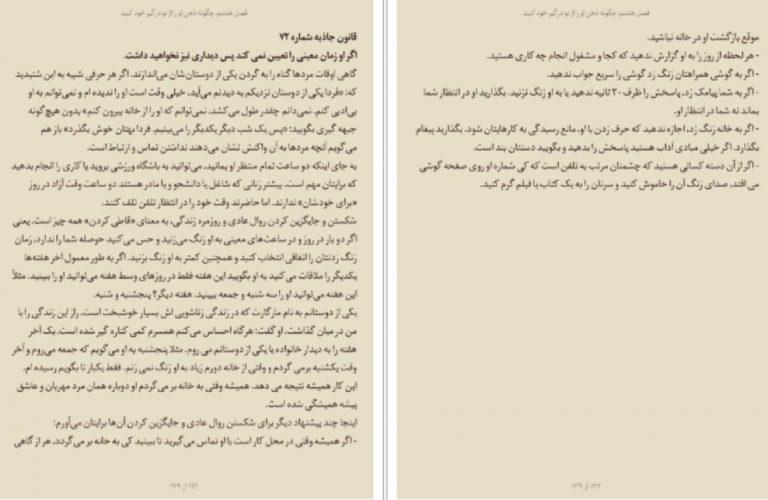 فصل هشتم: چگونه ذهن او را از نو درگیر خود کنید
قانون جاذبه شماره ۷۲
اگر او زمان معینی را تعیین نمی کند پس دیداری نیز نخواهید داشت.
گاهی اوقات مردها گناه را به گردن یکی از دوستان‌شان می‌اندازند. اگر هر حرفی شبیه به این شنیدید
که: «فردا یکی از دوستان نزدیکم به دیدنم می‌آید، خیلی وقت است او را ندیده ام و نمی‌توانم به او
بی‌ادبی کنم. نمی‌دانم چقدر طول می‌کشد، نمی‌توانم که او را از خانه بیرون کنم» بدون هیچ‌گونه
جبهه گیری بگویید: «پس یک شب دیگر یکدیگر را می‌بینیم. فردا بهتان خوش بگذرد» باز هم
می‌گویم آنچه مردها به آن واکنش نشان می‌دهند نداشتن تماس و ارتباط است.
به جای اینکه دو ساعت تمام منتظر او بمانید، می‌توانید به باشگاه ورزشی بروید یا کاری را انجام بدهید
که برایتان مهم است. بیشتر زنانی که شاغل یا دانشجو و یا مادر هستند دو ساعت وقت آزاد در روز
«برای خودشان» ندارند. اما حاضرند وقت خود را در انتظار تلفن تلف کنند.
شکستن و جایگزین کردن روال عادی و روزمره زندگی، به معنای «قاطی کردن» همه چیز است. یعنی
اگر دو بار در روز و در ساعت‌های معینی به او زنگ می‌زنید و حس می کنید حوصله شما را ندارد، زمان
زنگ زدنتان را اتفاقی انتخاب کنید و همچنین کمتر به او زنگ بزنید. اگر به طور معمول آخر هفته‌ها
یکدیگر را ملاقات می کنید به او بگویید این هفته فقط در روزهای وسط هفته می‌توانید او را ببینید. مثلاً
این هفته می‌توانید او را سه شنبه و جمعه ببینید. هفته دیگر؟ پنجشنبه و شنبه.
یکی از دوستانم به نام مارگارت که در زندگی زناشویی اش بسیار خوشبخت است، راز این زندگی را با
من در میان گذاشت. او گفت: هرگاه احساس می‌کنم همسرم کمی کناره گیر شده است، یک آخر
هفته را به دیدار خانواده یا یکی از دوستانم می روم. مثلا پنجشنبه به او می‌گویم که جمعه می‌روم و آخر
وقت یکشنبه برمی گردم و وقتی از خانه دورم زیاد به او زنگ نمی زنم. فقط یکبار تا بگویم رسیده ام.
این کار همیشه نتیجه می دهد. همیشه وقتی به خانه بر می‌گردم او دوباره همان مرد مهربان و عاشق
پیشه همیشگی شده است.
اینجا چند پیشنهاد دیگر برای شکستن روال عادی و جایگزین کردن آن‌ها برایتان می‌آورم:
- اگر همیشه وقتی در محل کار است با او تماس می‌گیرید تا ببینید کی به خانه بر می‌گردد، هر از گاهی
۱۲۱ از ۱۳۹
فصل هشتم: چگونه ذهن او را از نو درگیر خود کنید
موقع بازگشت او در خانه نباشید.
- هر لحظه از روز را به او گزارش ندهید که کجا و مشغول انجام چه کاری هستید.
- اگر به گوشی همراهتان زنگ زد گوشی را سریع جواب ندهید.
- اگر به شما پیامک زد، پاسخش را ظرف ۲۰ ثانیه ندهید یا به او زنگ نزنید. بگذارید او در انتظار شما
بماند نه شما در انتظار او.
- اگر به خانه زنگ زد، اجازه ندهید که حرف زدن با او، مانع رسیدگی به کارهایتان شود. بگذارید پیغام
بگذارد. اگر خیلی مبادی آداب هستید پاسخش را بدهید و بگویید دستتان بند است.
- اگر از آن دسته کسانی هستید که چشمتان مرتب به تلفن است که کی شماره او روی صفحه گوشی
می افتد، صدای زنگ آن را خاموش کنید و سرتان را به یک کتاب یا فیلم گرم کنید.
۱۲۲ از ۱۳۹